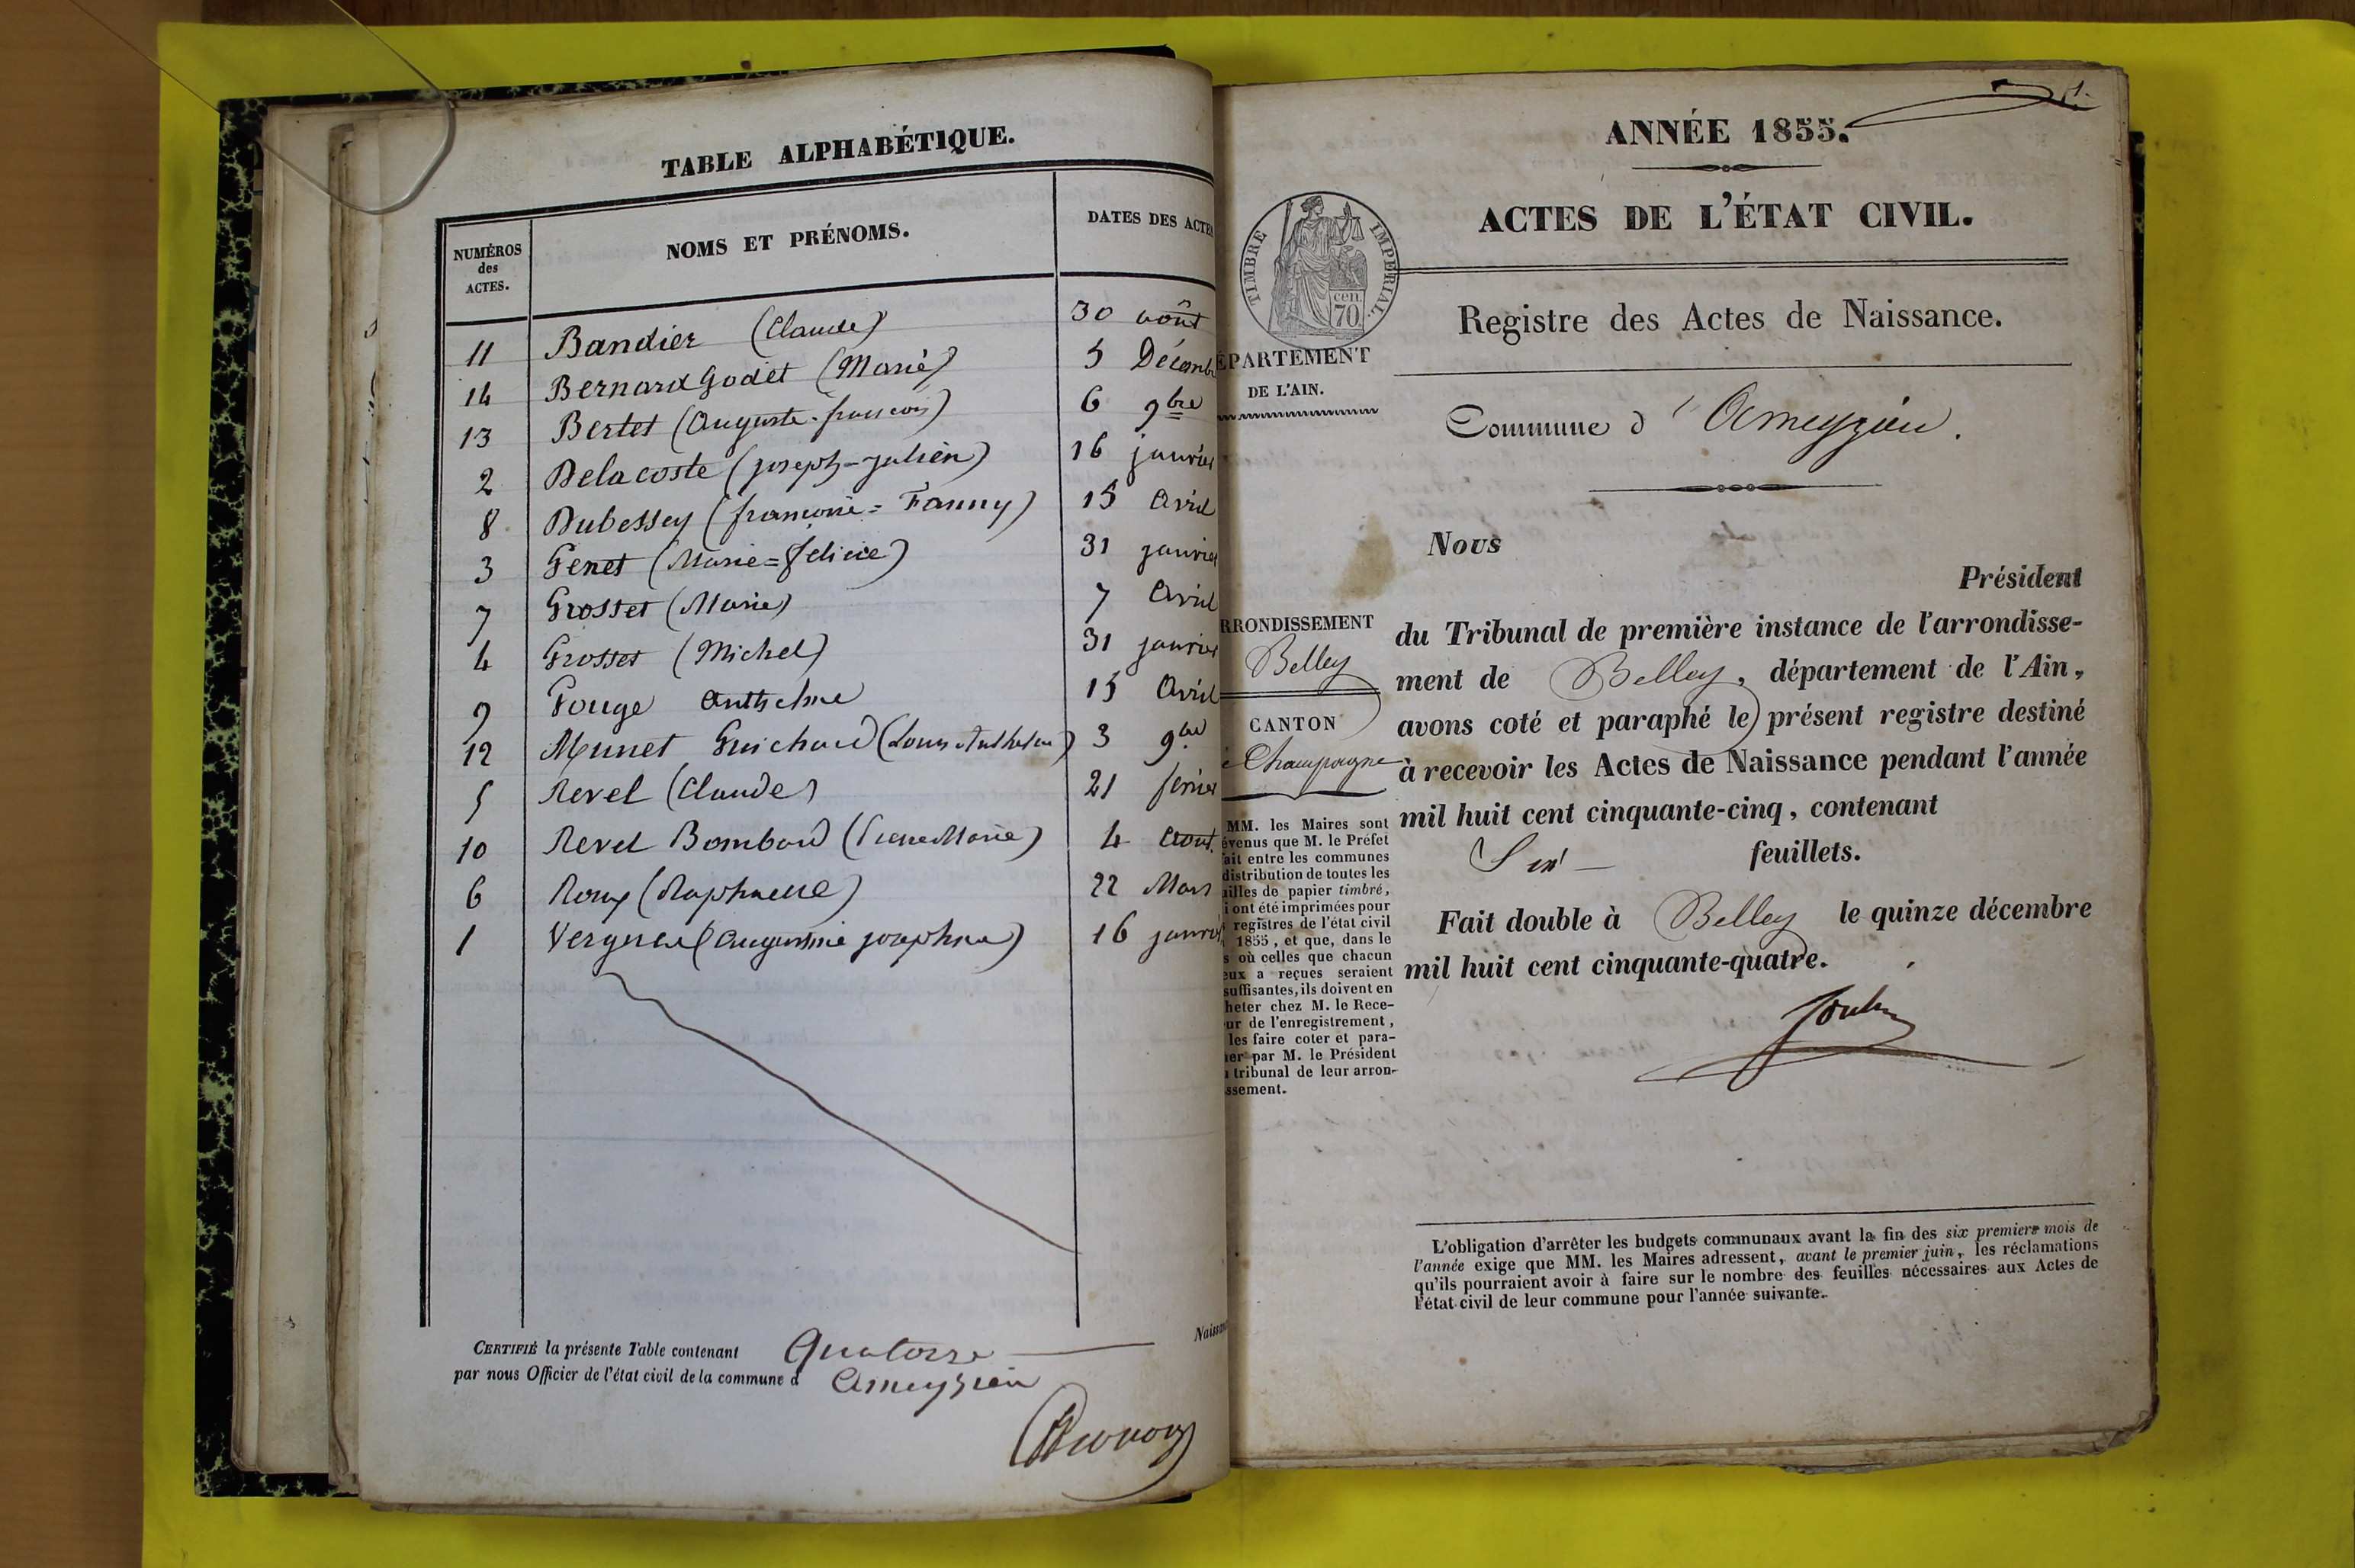 TABLE ALPHABÉTIQUE.
NUMÉROS
des
ACTES.
NOMS ET PRÉNOMS.
DATES DES ACTES
11 Bandier (Claude) 30 août
14 Bernard Godet (Marie) 5 Décemb
13 Bertet (Auguste-françois) 6 9bre
2 Delacoste (joseph-julien) 16 janvier
8 Dubessey (francoise = Fanny) 15 Avril
3 Genet (Marie=félicie) 31 janvier
7 Grosset (Marie) 7 Avril
4 Grosset (Michel) 31 janvier
9 Gouge Anthelme 15 Avril
12 Munet Guichard (Louis Anthelme) 3 9bre
5 Revel (Claude) 21 février
10 Revel Bombard (Pierre Marie) 4 Aout
6 Roux (Raphaelle) 22 Mars
1 (Augustine josephine) 16 janvier
CERTIFIÉ la présente Table contenant Quatorze
par nous Officier de l'état civil de la commune d Ameyzieu
ANNÉE 1855.
ACTES DE L'ÉTAT CIVIL.
TIMBRE IMPÉRIAL.
cen.
70
Registre des Actes de Naissance.
ÉPARTEMENT
DE L'AIN.
Commune d' Ameyzieu.
Nous
Président
du Tribunal de première instance de l'arrondisse-
ment de Belley, département de l'Ain,
avons coté et paraphé le présent registre destiné
à recevoir les Actes de Naissance pendant l'année
mil huit cent cinquante-cinq, contenant
Six feuillets.
Fait double à Belley le quinze décembre
mil huit cent cinquante-quatre.
RRONDISSEMENT
Belley
CANTON
Champagne
MM. les Maires sont
évenus que M. le Préfet
ait entre les communes
distribution de toutes les
uilles de papier timbré,
i ont été imprimées pour
registres de l'état civil
1855, et que, dans le
s où celles que chacun
eux a reçues seraient
suffisantes, ils doivent en
heter chez M. le Rece-
ur de l'enregistrement,
les faire coter et para-
er par M. le Président
tribunal de leur arron-
ssement.
L'obligation d'arrêter les budgets communaux avant la fin des six premiers mois de
l'année exige que MM. les Maires adressent, avant le premier juin, les réclamations
qu'ils pourraient avoir à faire sur le nombre des feuilles nécessaires aux Actes de
l'état civil de leur commune pour l'année suivante.